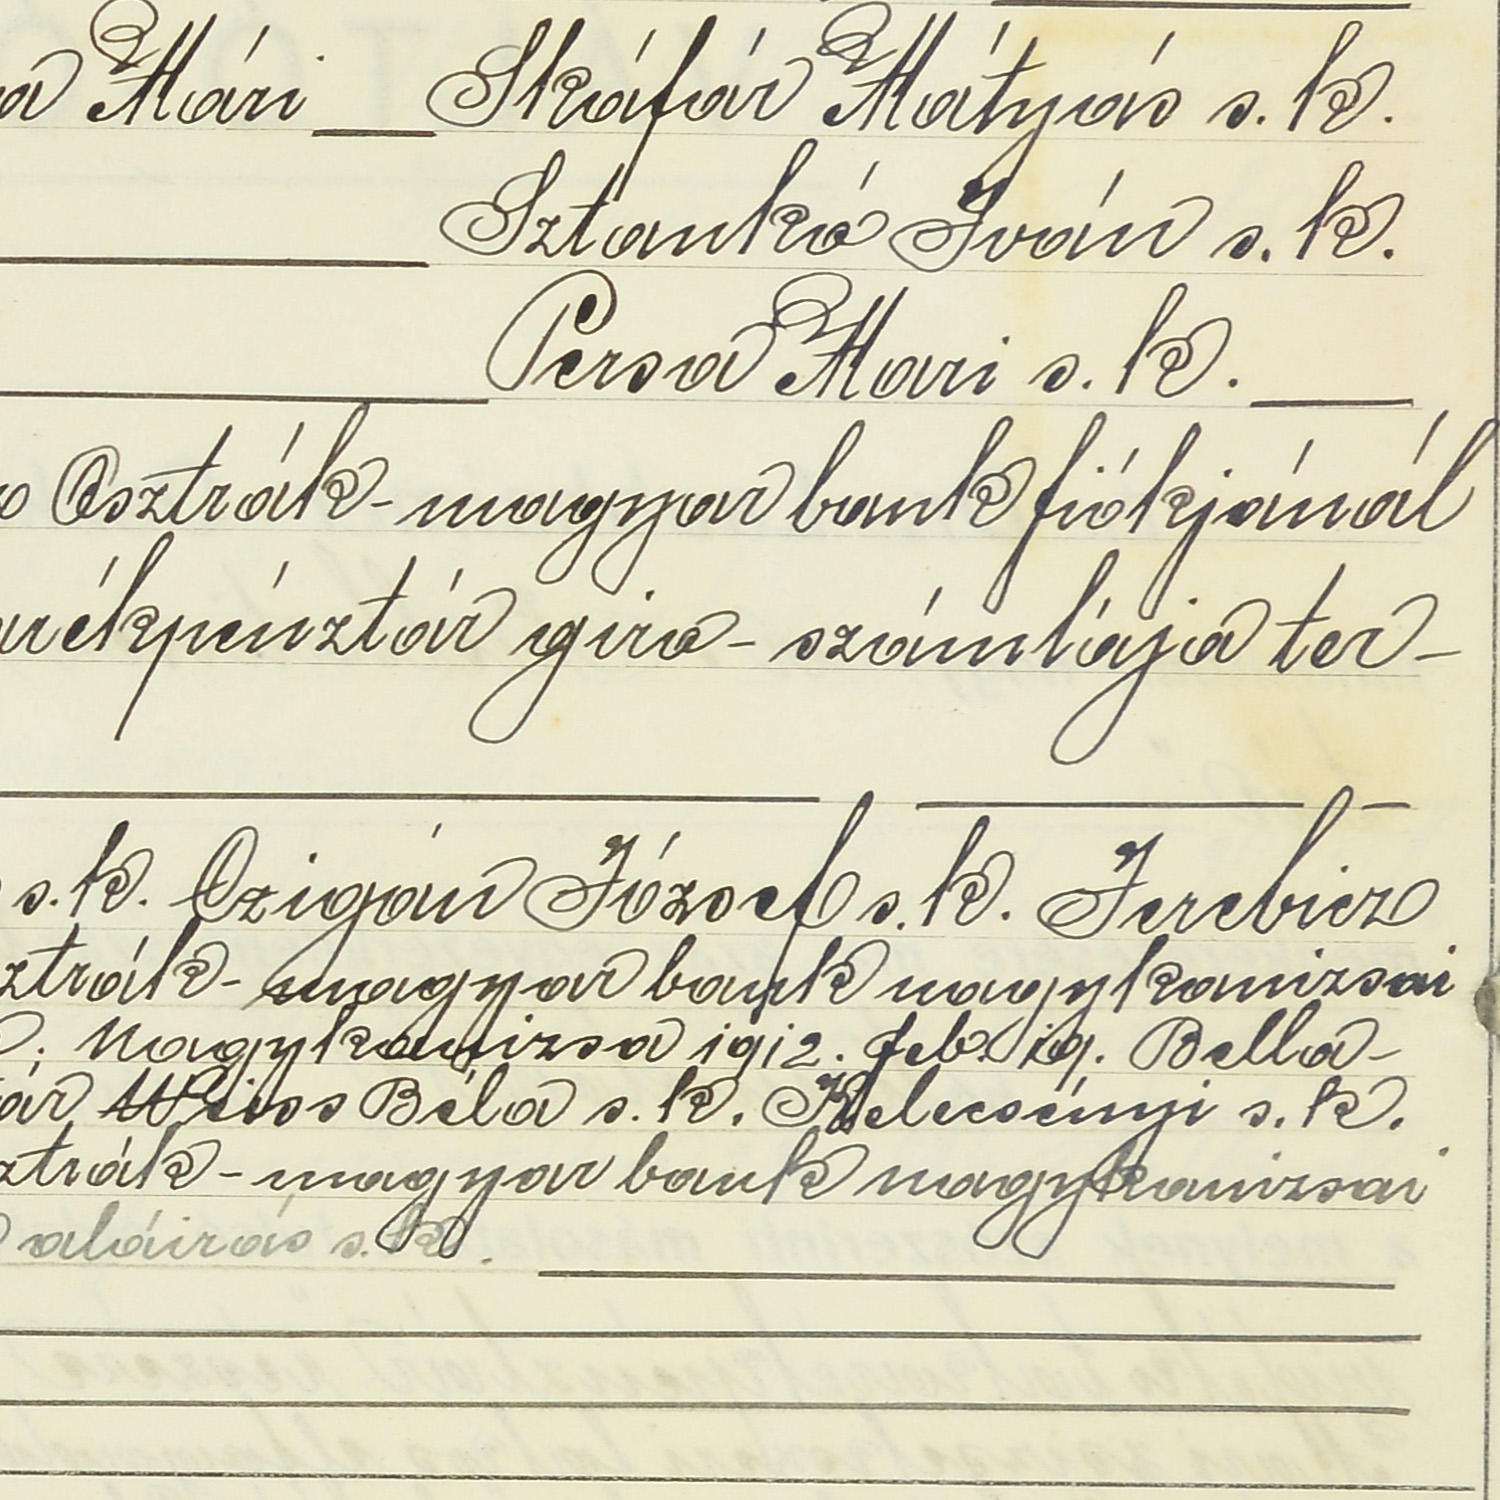 a Mári Skáfár Mátyás s. k.
Sztankó Iván s. k.
Persa Mari s. k.
Osztrák-magyar bank fiókjánál
rékpénztár giro-számlája ter-
s. k. Czigán József s. k. Jerebicz
ztrák-magyar bank nagykanizsai
Nagykanizsa 1912. feb. 19. Bella-
ár Weiss Béla s. k. Kelecsényi s. k.
ztrák-magyar bank nagykanizsai
aláirás s. k.